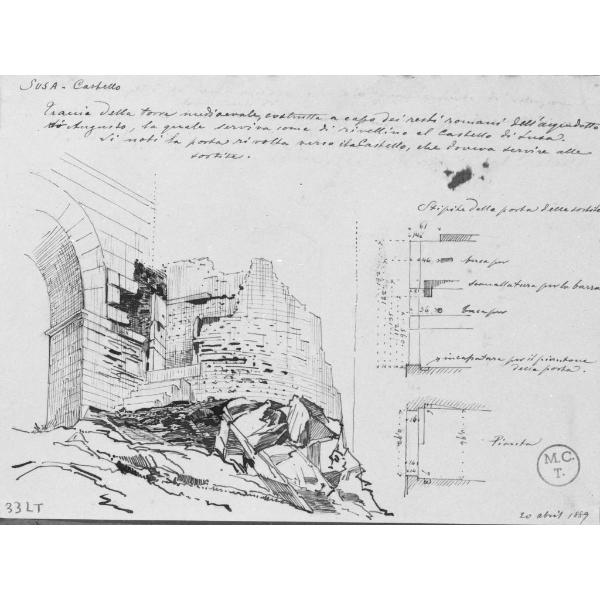 SUSA - Castello
Traccia della torre medioevale, costrutta a capo dei resti romani dell'acquedotto
di Augusto, la quale serviva come di rivellino al Castello di Susa.
Si noti la porta rivolta verso il Castello, che doveva servire alle
sortite.
Stipite della porta delle sortite
61
146
46
buca per
scanallatura per la barra
36
buca per
incassatura per il pivottone
della porta.
Pianta
M.C.
T.
33 LT
20 abril 1889